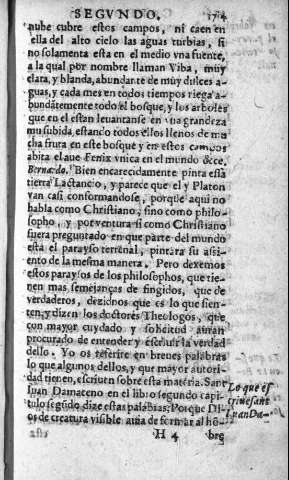 SEGVNDO.
nube cubre estos campos, ni caen en
ella del alto cielo las aguas turbias, si
no solamente esta en el medio vna fuente,
a la qual por nombre llaman Viba, muy
clara, y blanda, abundante de muy dulces a-
guas, y cada mes en todos tiempos riega a-
bundãtemente todo el bosque, y los arboles
que en el estan leuantanse en vna grandeza
mu subida, estando todos ellos llenos de mu
cha fruta en este bosque y en estos campos
abita el aue Fenix vnica en el mundo &ce.
Bernardo. Bien encarecidamente pinta essa
tierra Lactancio, y parece que el y Platon
van casi conformandose, porque aqui no
habla como Christiano, sino como philo-
sopho, y porventura si como Christiano
fuera preguntado en que parte del mundo
està el parayso terrenal, pintara su assi-
ento de la mesma manera. Pero dexemos
estos paraysos de los philosophos, que tie-
nen mas semejanças de fingidos, que de
verdaderos, dezidnos que es lo que sien-
ten, y dizen los doctores Theologos, que
con mayor cuydado y solicitud auran
procurado de entender y escriuir la verdad
dello. Yo os referire en breues palabras
lo que algunos dellos, y que mayor autori-
dad tienen, escriuen sobre esta materia. Sant
Iuan Damaceno en el libro segundo capi-
tulo segũdo dize estas palabras; Porque Di-
os de creatura visible auia de formar al hõ-
Lo que es
criue sant
Iuan Da-
H 4
bre